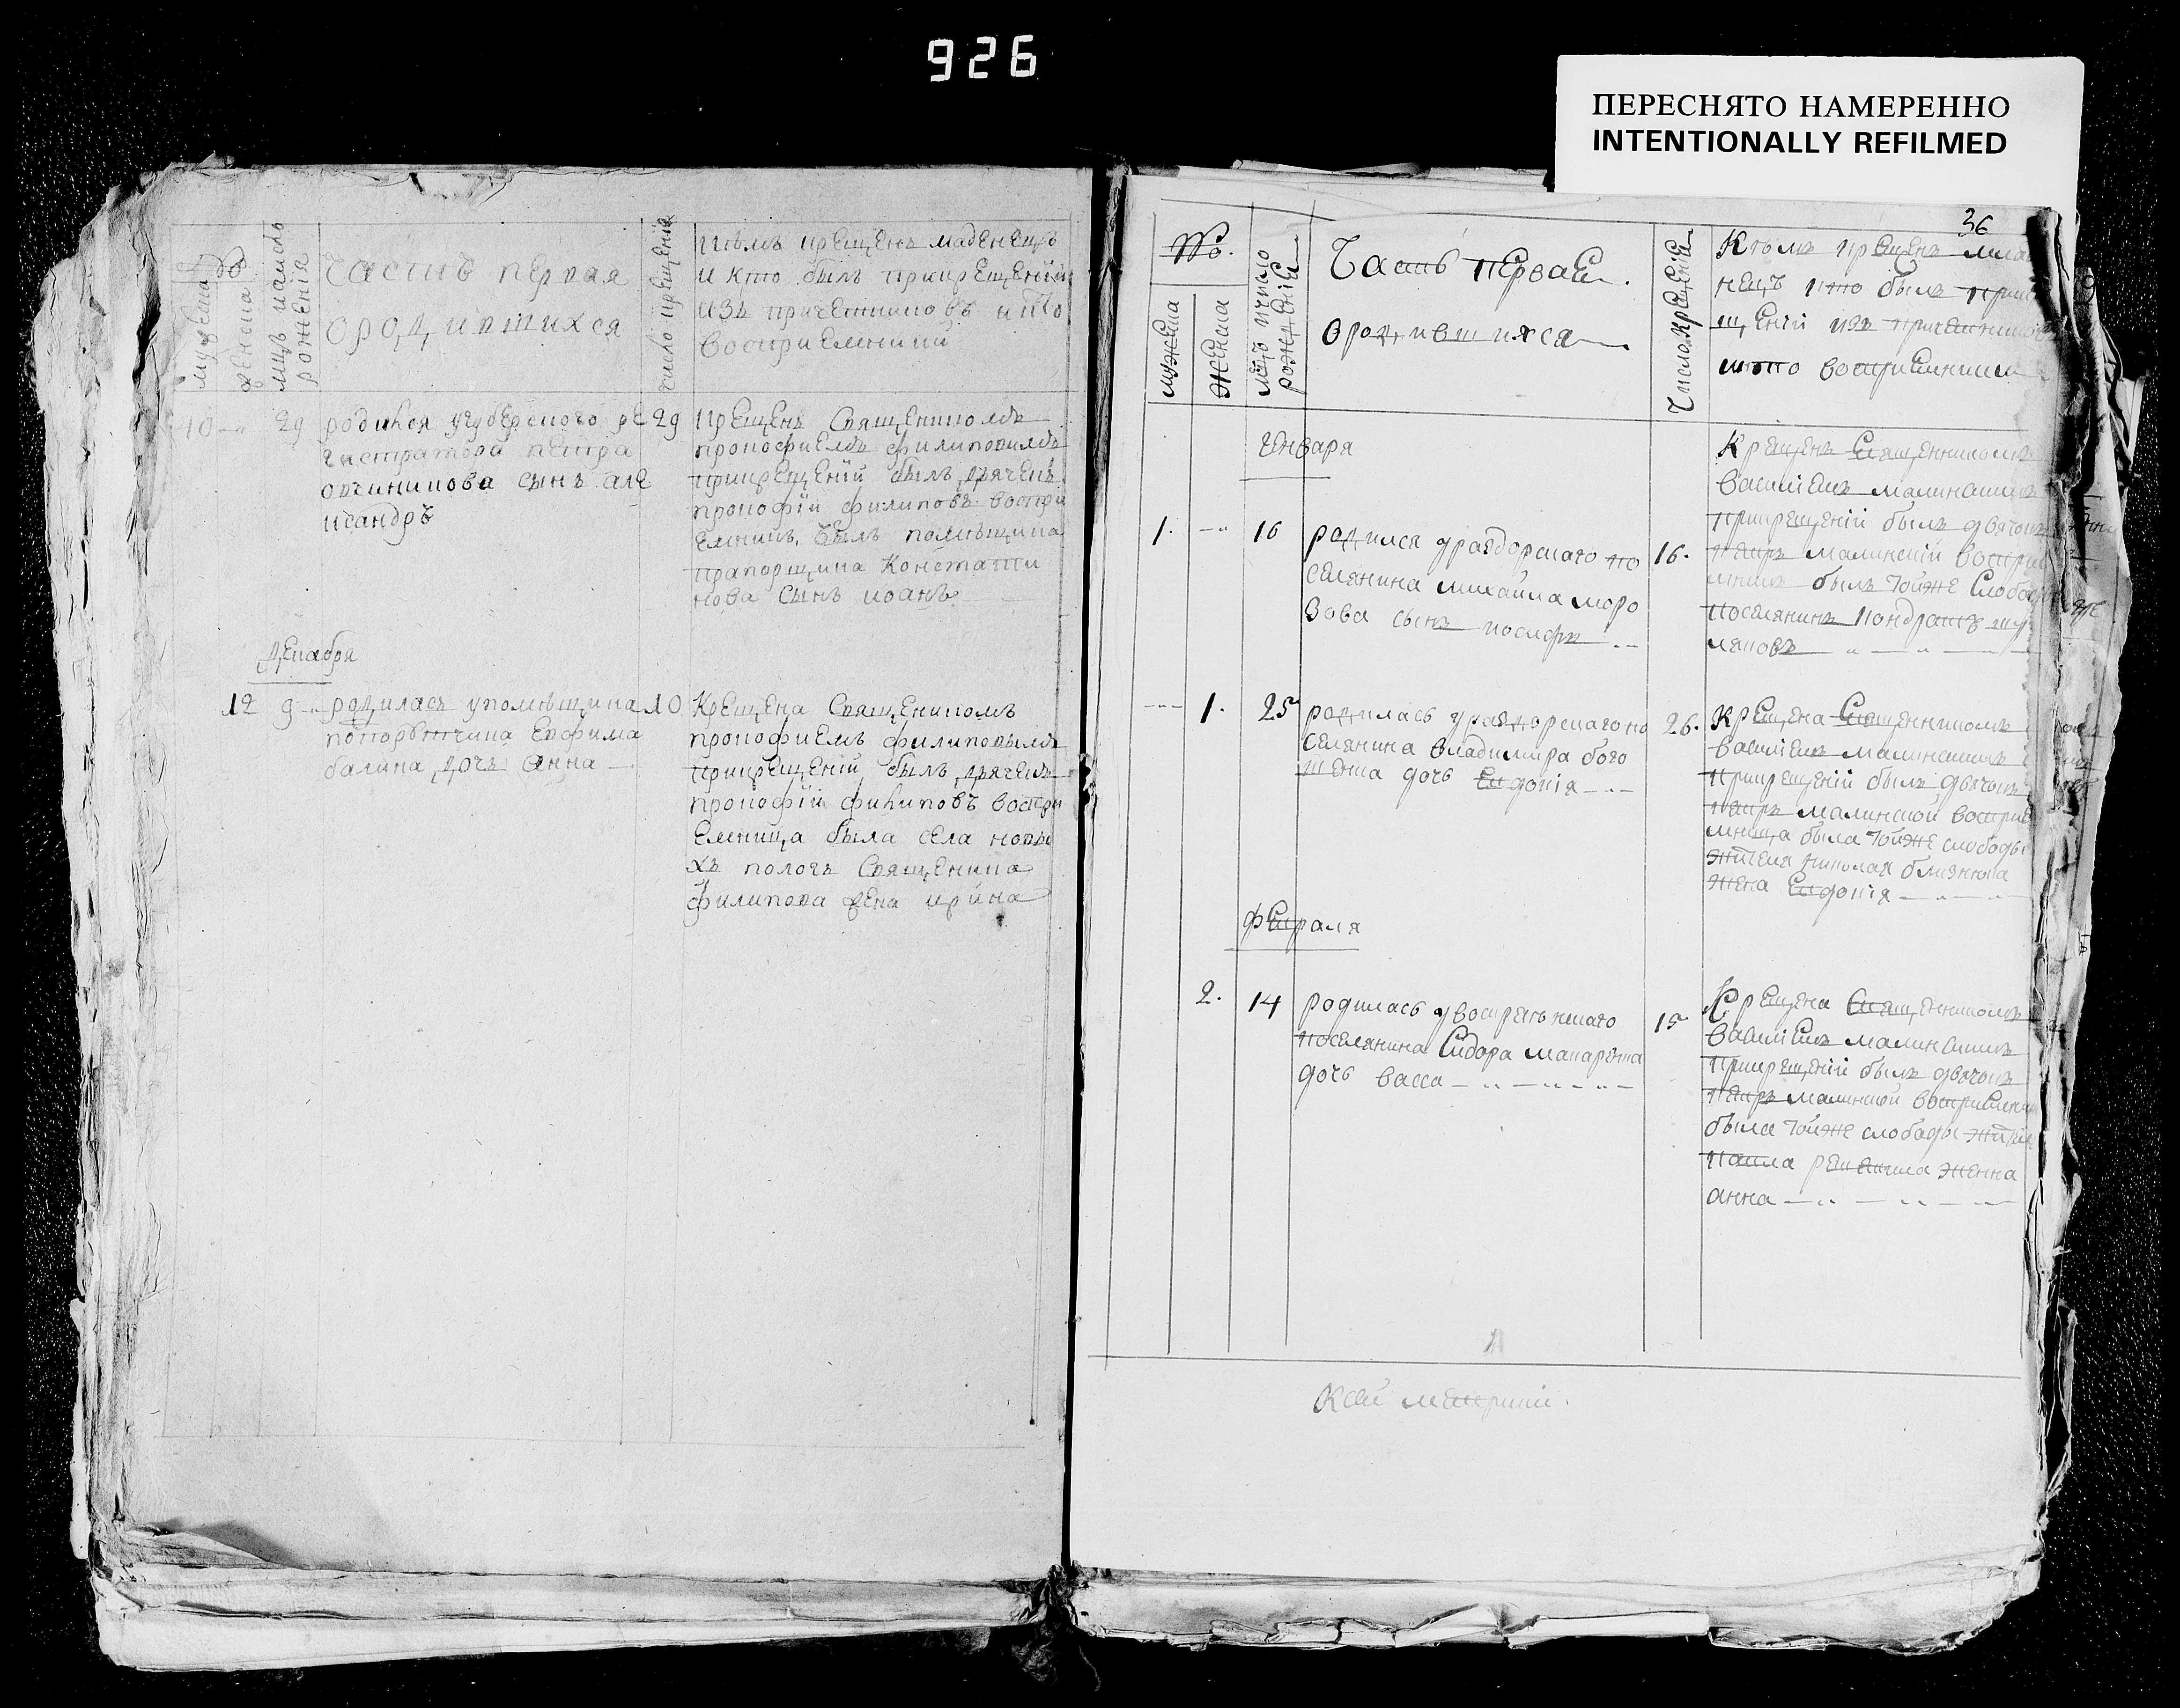 926
ПЕРЕСНЯТО НАМЕРЕННО
INTENTIONALLY REFILMED
№
мужеска
женска
мцъ ичисло рожения
часть первая
ородившихся
число крещения
кѣмъ крещенъ младенецъ
и кто былъ прикрещенїи
изъ причетниковъ и кто
восприемники
10 29 родился угуберскаго ре 29
гистратора петра
овчиникова сынъ але
ксандръ
крещенъ Священикомъ
прокофиемъ филиповимъ
прикрещенїй былъ дячекъ
прокофїй филиповъ воспри
емникъ былъ помѣщика
прапорщика Константи
нова сынъ иоанъ
декабря
12 9 родилась упомѣщика 10
попорутчика Евфима
балина дочь Анна
Крещена Священикомъ
прокофиемъ филиповымъ
прикрещенїй былъ дячекъ
прокофїй филиповъ воспри
емница была села новы
хъ пологъ Священика
филипова жена ирина
36
№.
мужеска
женска
мцъ ичисло рожденїя
Часть первая
ородившихся
Число крещенїя
Кѣмъ крещенъ мла
нецъ кто былъ прикр
щенїй изъ причетников
икто восприемники
генваря
1. 16 родилсяураздорскаго по 16.
селянина михайла моро
зова сынъ иосифъ
Крещенъ Священникомъ
василіемъ малинскимъ
прикрещенїй былъ дячокъ
петръ малинскїй восприе
мникъ былъ тойже слобод
поселянинъ кондратъ
ляповъ
1. 25 родилась ураздорскаго по 26.
селянина владимира бого
дочь Евдокія
крещена Священникомъ
василіемъ малинскимъ
прикрещенїй былъ дячокъ
петръ малинской восприе
мница была тойже слободы
жителя николая близнюка
жена Евдокія
февраля
2. 14 родилась у
поселянина Сидора макаренка 15
дочь васса
Крещена Священникомъ
василіемъ малинскимъ
прикрещенїй былъ дячокъ
петръ малинской восприемни
была тойже слободы жителя
павла женна
анна